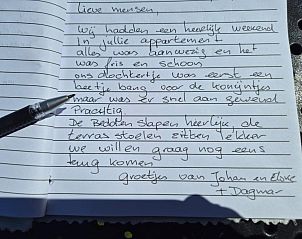 Lieve mensen
Wij hadden een heerlijk weekend
In jullie appartement
alles was aanwezig en het
was fris en schoon
ons dochtertje was eerst een
beetje bang voor de konijntjes
maar was er snel aan gewend
Prachtig
De Bedden slapen heerlijk, de
terras stoelen zitten lekker
we willen graag nog eens
terug komen
groetjes van Johan en
+ Dagmar